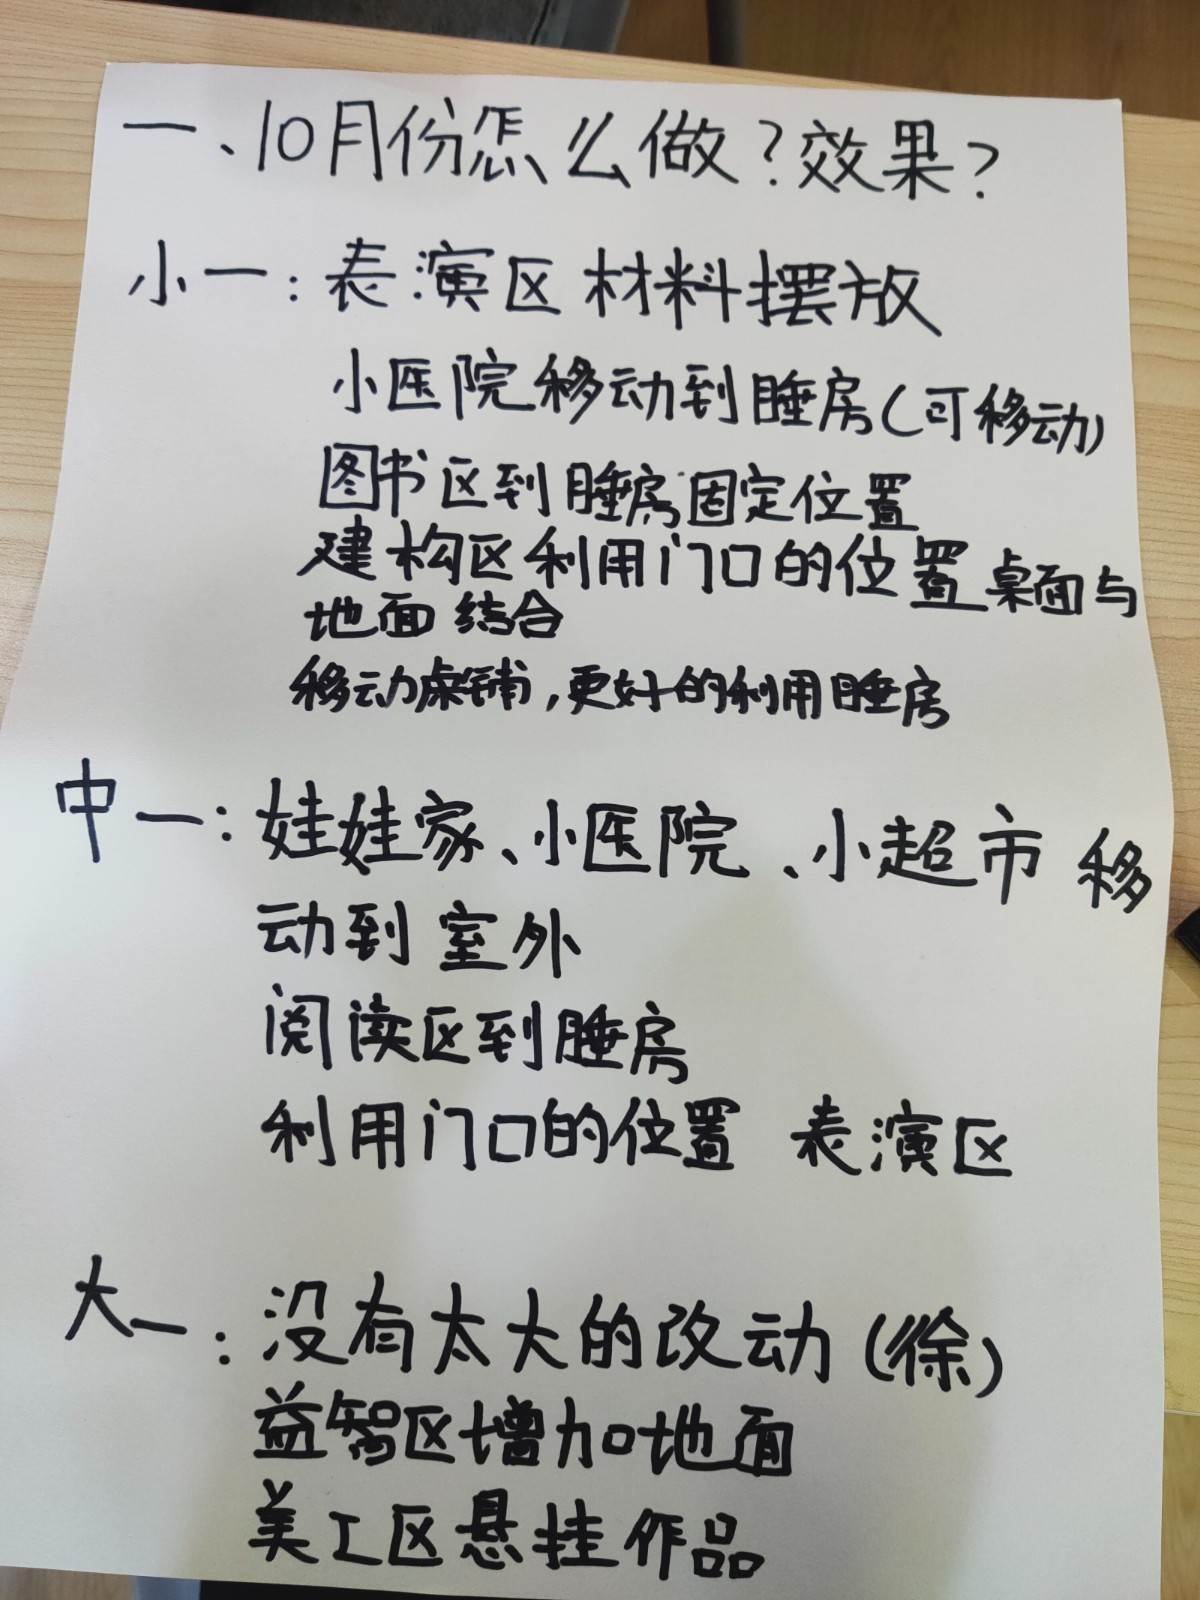 一、10月份怎么做?效果?
小一:表演区材料摆放
小医院移动到睡房(可移动)
图书区到睡房固定位置
建构区利用门口的位置桌面与
地面结合
移动床铺,更好的利用睡房
中一:娃娃家、小医院、小超市移
动到室外
阅读区到睡房
利用门口的位置 表演区
大一:没有太大的改动(徐)
益智区增加地面
美工区悬挂作品